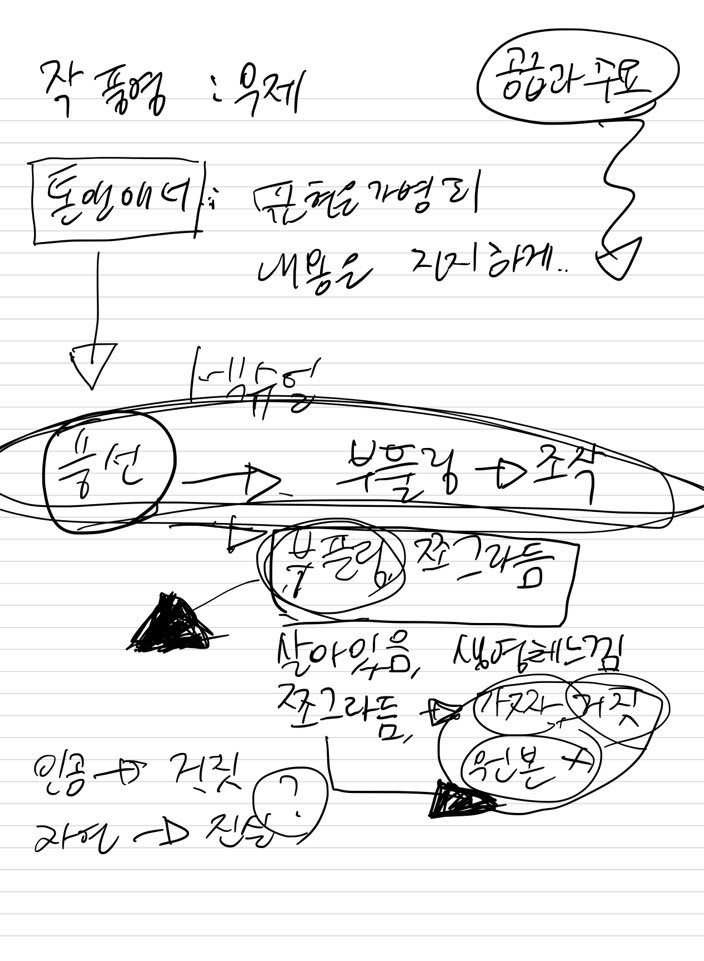 작품명 : 우제
공급과 수요
톤앤매너 : 표현은 가볍되
내용은 진지하게..
풍선 → 부풀림 → 조작
→ 부풀림, 쪼그라듬
살아있음, 생명체느낌
쪼그라듬, → 가짜, 거짓
원본 X
인공 → 거짓
자연 → 진실 ?